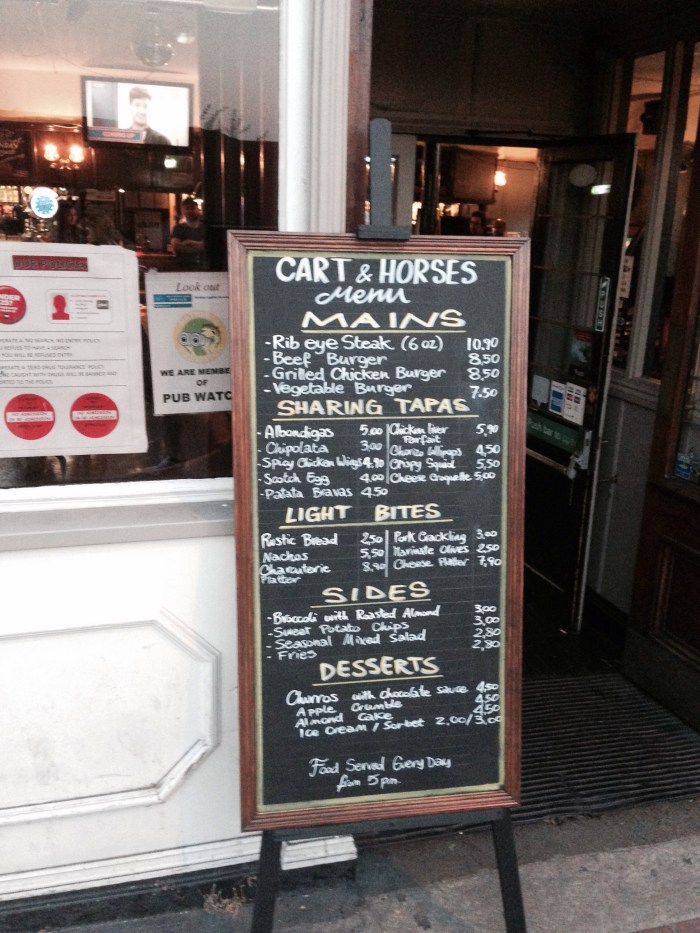 Look out
WE ARE MEMBE
OF
PUB WATC
CART & HORSES
Menu
MAINS
- Rib eye Steak (6 oz) 10.90
- Beef Burger 8,50
- Grilled Chicken Burger 8,50
- Vegetable Burger 7.50
SHARING TAPAS
- Albondigas 5.00
- Chipolata 3.00
- Spicy Chicken Wings 4.90
- Scotch Egg 4.00
- Patata Bravas 4.50
Chicken liver Parfait 5,90
Chorizo lollipops 4,50
Crispy Squid 5,50
Cheese Croquette 5,00
LIGHT BITES
Rustic Bread 2,50
Nachos 5,50
Charcuterie Platter 8,90
Pork Crackling 3,00
Marinate Olives 2.50
Cheese Platter 7,90
SIDES
- Broccoli with Roasted Almond 3,00
- Sweet Potato Chips 3,00
- Seasonal Mixed Salad 2,80
- Fries 2,80
DESSERTS
Churros with chocolate sauce 4,50
Apple Crumble 4,50
Almond Cake 4,50
Ice Cream / Sorbet 2,00/3,00
Food Served Every Day
from 5 pm.
Push bar to